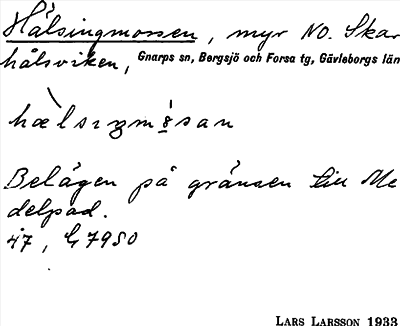 Hälsingmossen, myr NO. Skar
hålsviken, Gnarps sn, Bergsjö och Forsa tg, Gävleborgs län
Belägen på gränsen till Me
delpad.
47, G7950
LARS LARSSON 1933